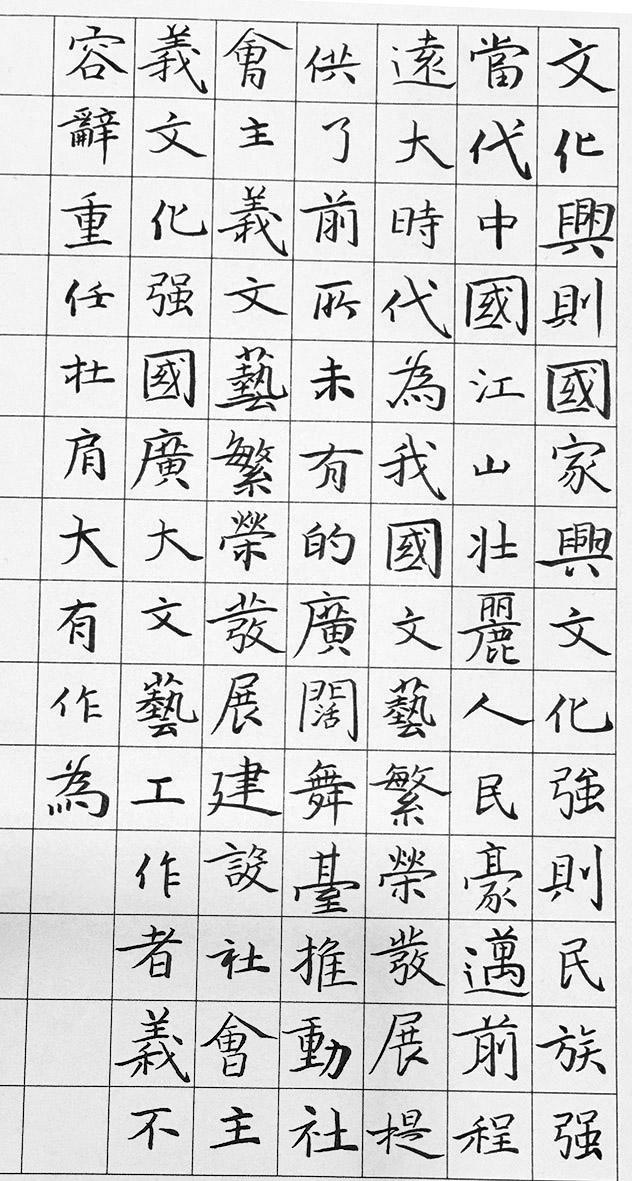 文化興則國家興文化強則民族强
當代中國江山壯麗人民豪邁前程
遠大時代為我國文藝繁榮發展提
供了前所未有的廣闊舞臺推動社
會主義文藝繁榮發展建設社會主
義文化强國廣大文藝工作者義不
容辭重任在肩大有作為